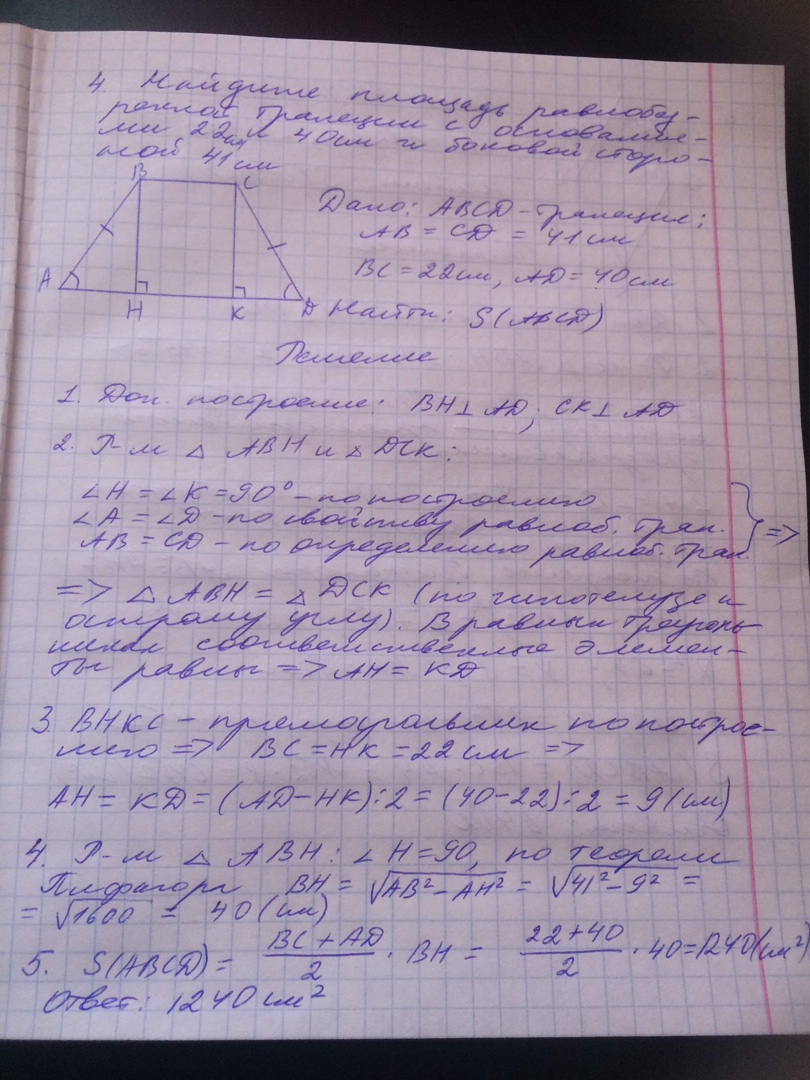 4. Найдите площадь равнобед-
ренной трапеции с основания-
ми 22см и 40см и боковой сторо-
ной 41см
B
C
A
H
K
D
Дано: ABCD - трапеция;
AB = CD = 41 см
BC = 22см, AD = 40см
Найти: S(ABCD)
Решение
1. Доп. построение: BH⊥AD; CK⊥AD
2. Р-м △ ABH и △ DCK:
∠H = ∠K = 90° - по построению
∠A = ∠D - по свойству равноб. трап.
AB = CD - по определению равноб. трап.
=>
=> △ ABH = △ DCK (по гипотенузе и
острому углу). В равных треуголь
никах соответственные элемен-
ты равны => AH = KD
3. BHKC - прямоугольник по построе-
нию => BC = HK = 22 см =>
AH = KD = (AD-HK):2 = (40-22):2 = 9(см)
4. Р-м △ ABH: ∠H=90, по теореме
Пифагора BH = √AB²-AH² = √41²-9² =
= √1600 = 40(см)
5. S(ABCD) = BC+AD/2 · BH = 22+40/2 · 40=1240(см²)
Ответ: 1240 см²